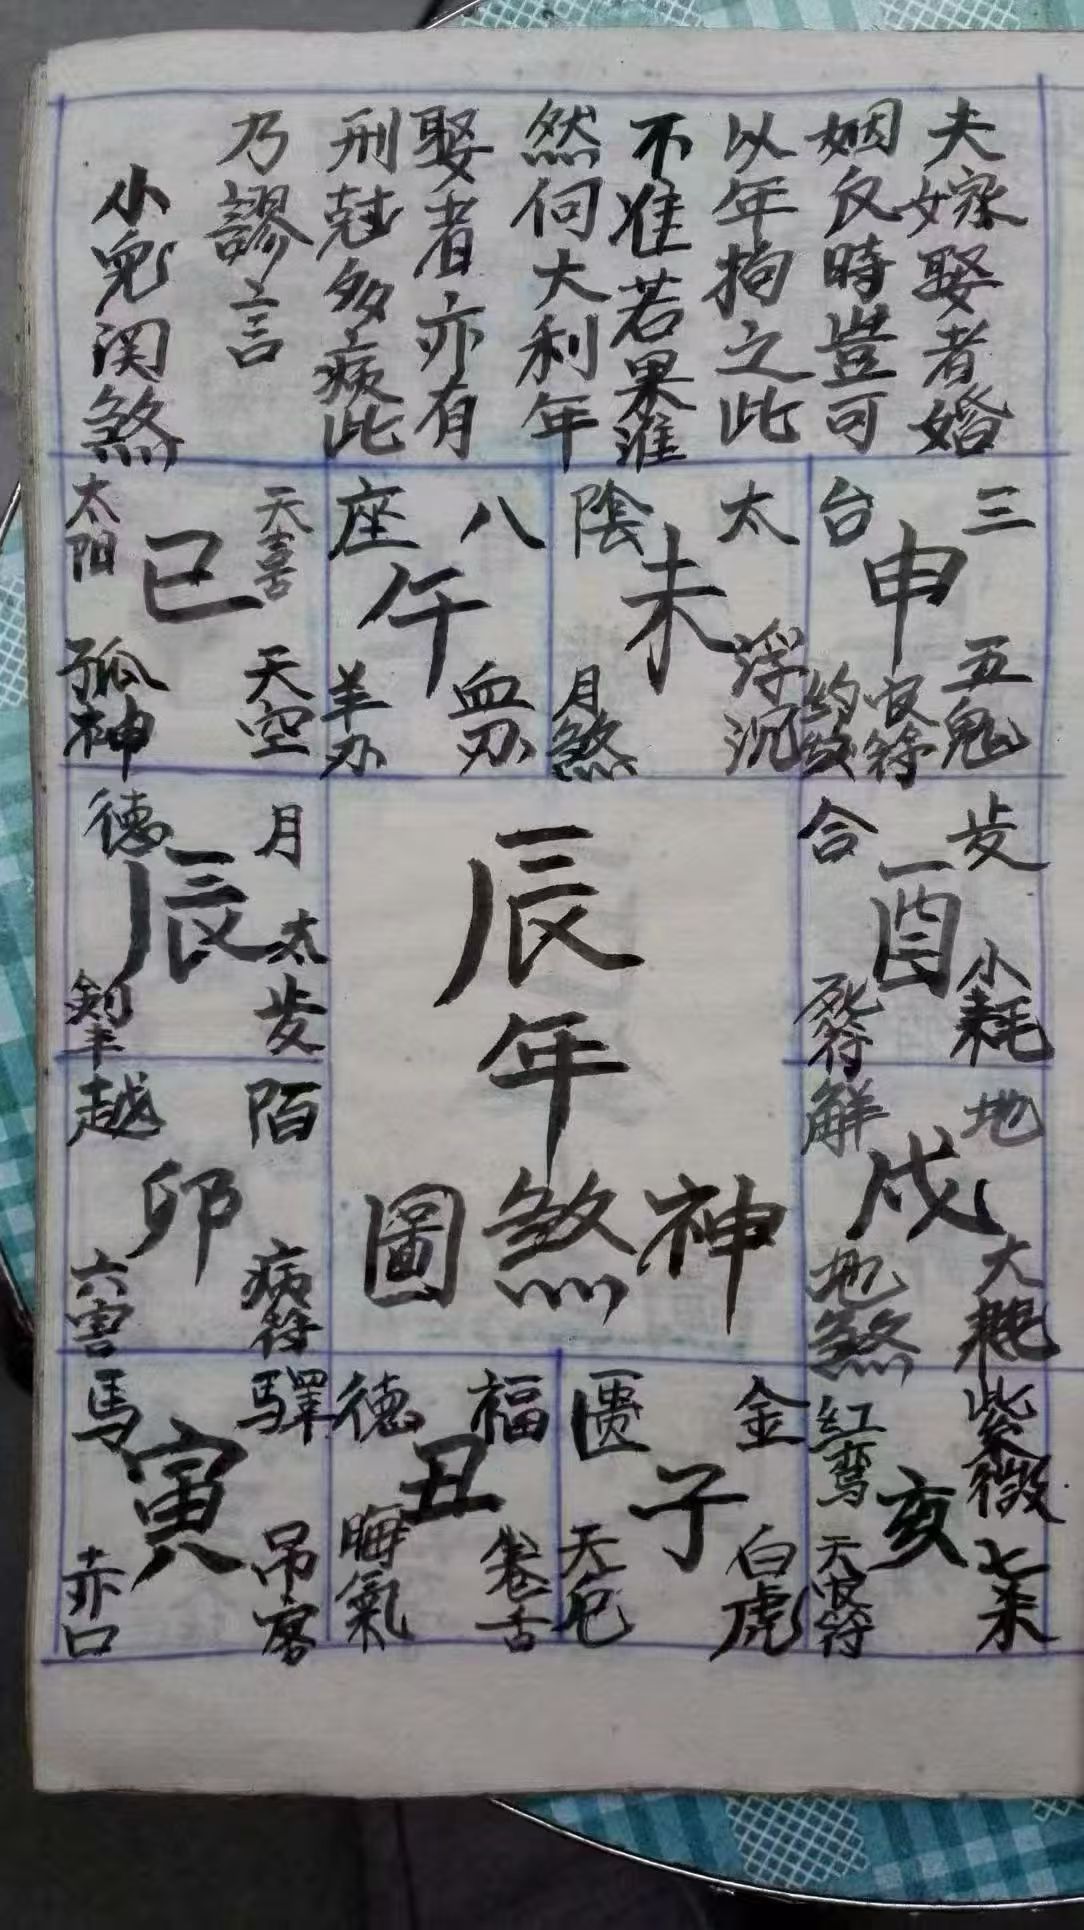 夫嫁娶者婚
姻仅時豈可
以年拘之此
不准若果准
然何大利年
娶者亦有
刑尅多病此
乃謬言
小兒関煞
三台
申
五鬼
太陰
未
浮沉
月煞
八座
午
血刃
羊刃
天喜
太阳
巳
天空
孤神
歲合
酉
小耗
死符
月德
辰
太歲
剑丰
地解
戌
大耗
地煞
陌越
卯
病符
六害
紫微
红鸾
亥
七杀
金匮
子
白虎
福德
丑
卷舌
晦氣
驛馬
寅
吊客
赤口
辰年
神煞圖